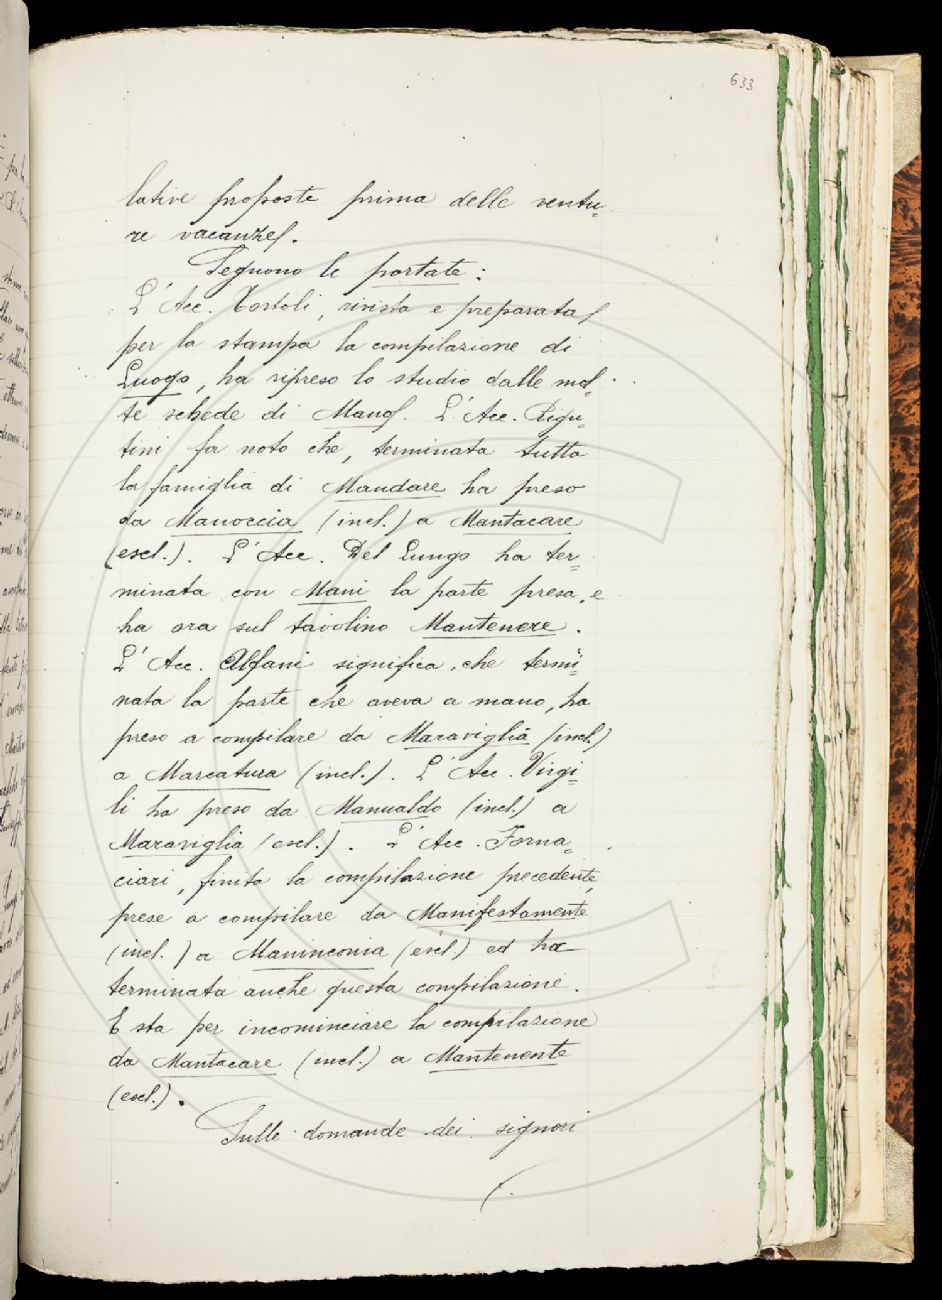 633
lative proposte prima delle ventu=
re vacanze.
Seguono le portate:
L'Acc. Tortoli, rivista e preparata
per la stampa la compilazione di
Luogo, ha ripreso lo studio dalle mol=
te schede di Mano. L'Acc. Rigu=
tini fa noto che, terminata tutta
la famiglia di Mandare ha preso
da Manoccia (incl.) a Mantacare
(escl.). L'Acc. Del Lungo ha ter=
minata con Mani la parte presa, e
ha ora sul tavolino Mantenere.
L'Acc. Alfani significa, che termi=
nata la parte che aveva a mano, ha
preso a compilare da Maraviglia (incl.)
a Marcatura (incl.). L'Acc. Virgi=
li ha preso da Manualdo (incl.) a
Maraviglia (escl.). L'Acc. Forna=
ciari, finita la compilazione precedente,
prese a compilare da Manifestamente
(incl.) a Maninconia (escl.) ed ha
terminata anche questa compilazione.
E sta per incominciare la compilazione
da Mantacare (incl.) a Mantenente
(escl.).
Sulle domande dei signori